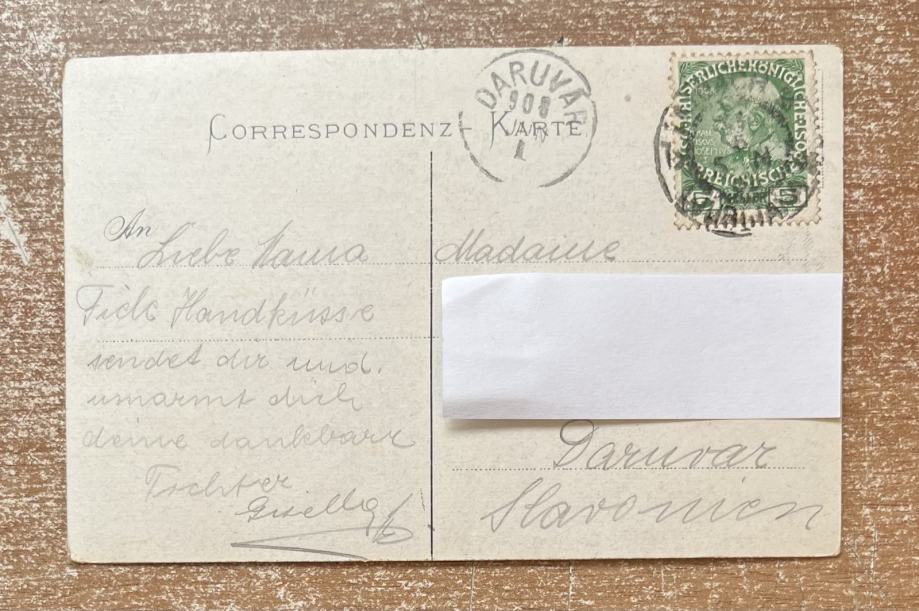 CORRESPONDENZ-KARTE
DARUVÁR
908
KAISERLICHE KÖNIGLICHE ÖSTERREICHISCHE
5 5
An
Liebe Mama
Viele Handküsse
sendet dir und
umarmt dich
deine dankbare
Tochter
Gisella
Madame
Daruvar
Slavonien